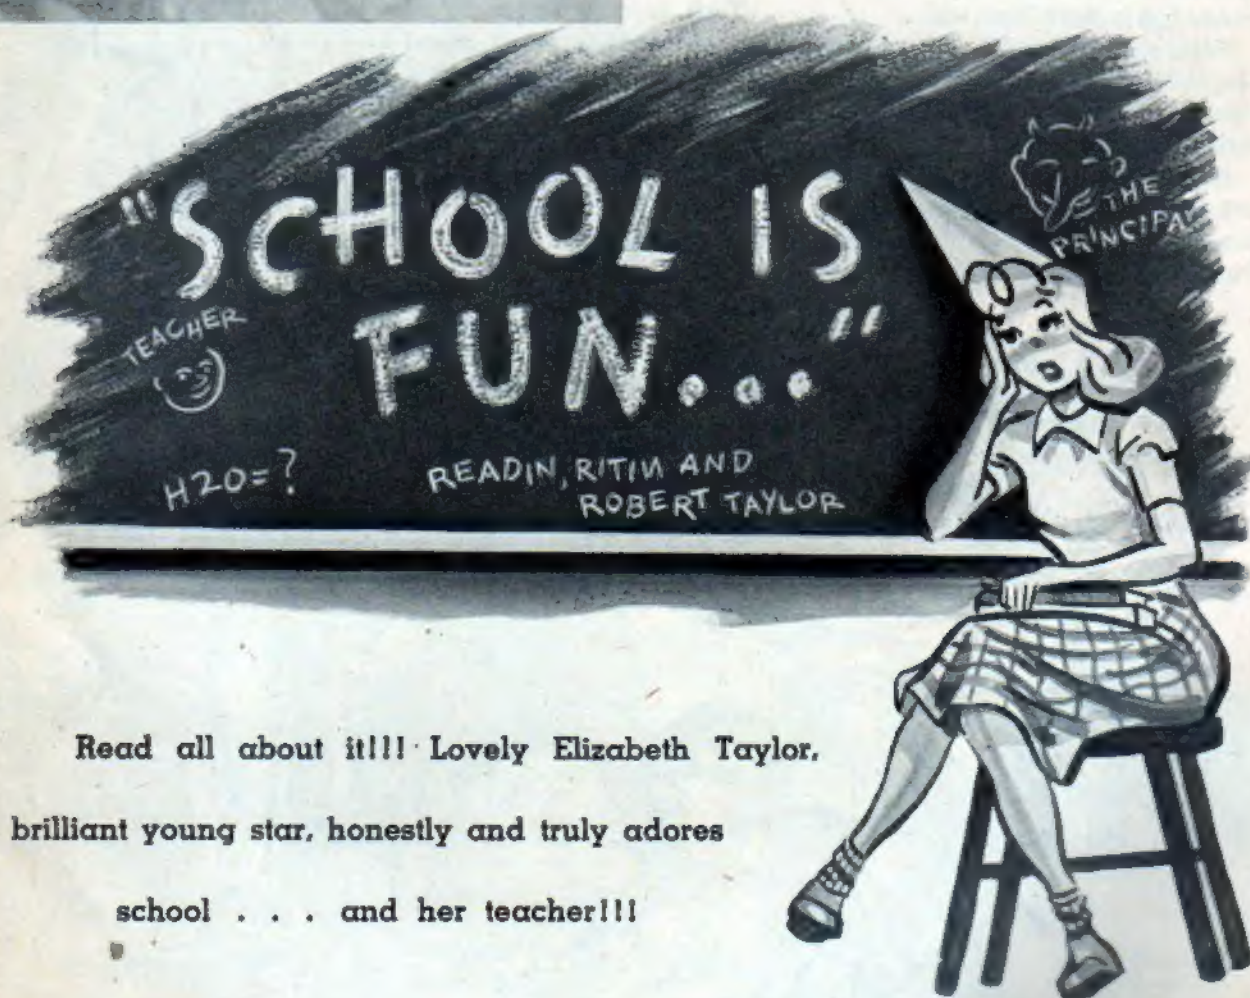 "SCHOOL IS
FUN..."
THE
PRINCIPAL
TEACHER
H2O=?
READIN, RITIN AND
ROBERT TAYLOR
Read all about it!!! Lovely Elizabeth Taylor,
brilliant young star, honestly and truly adores
school . . . and her teacher!!!